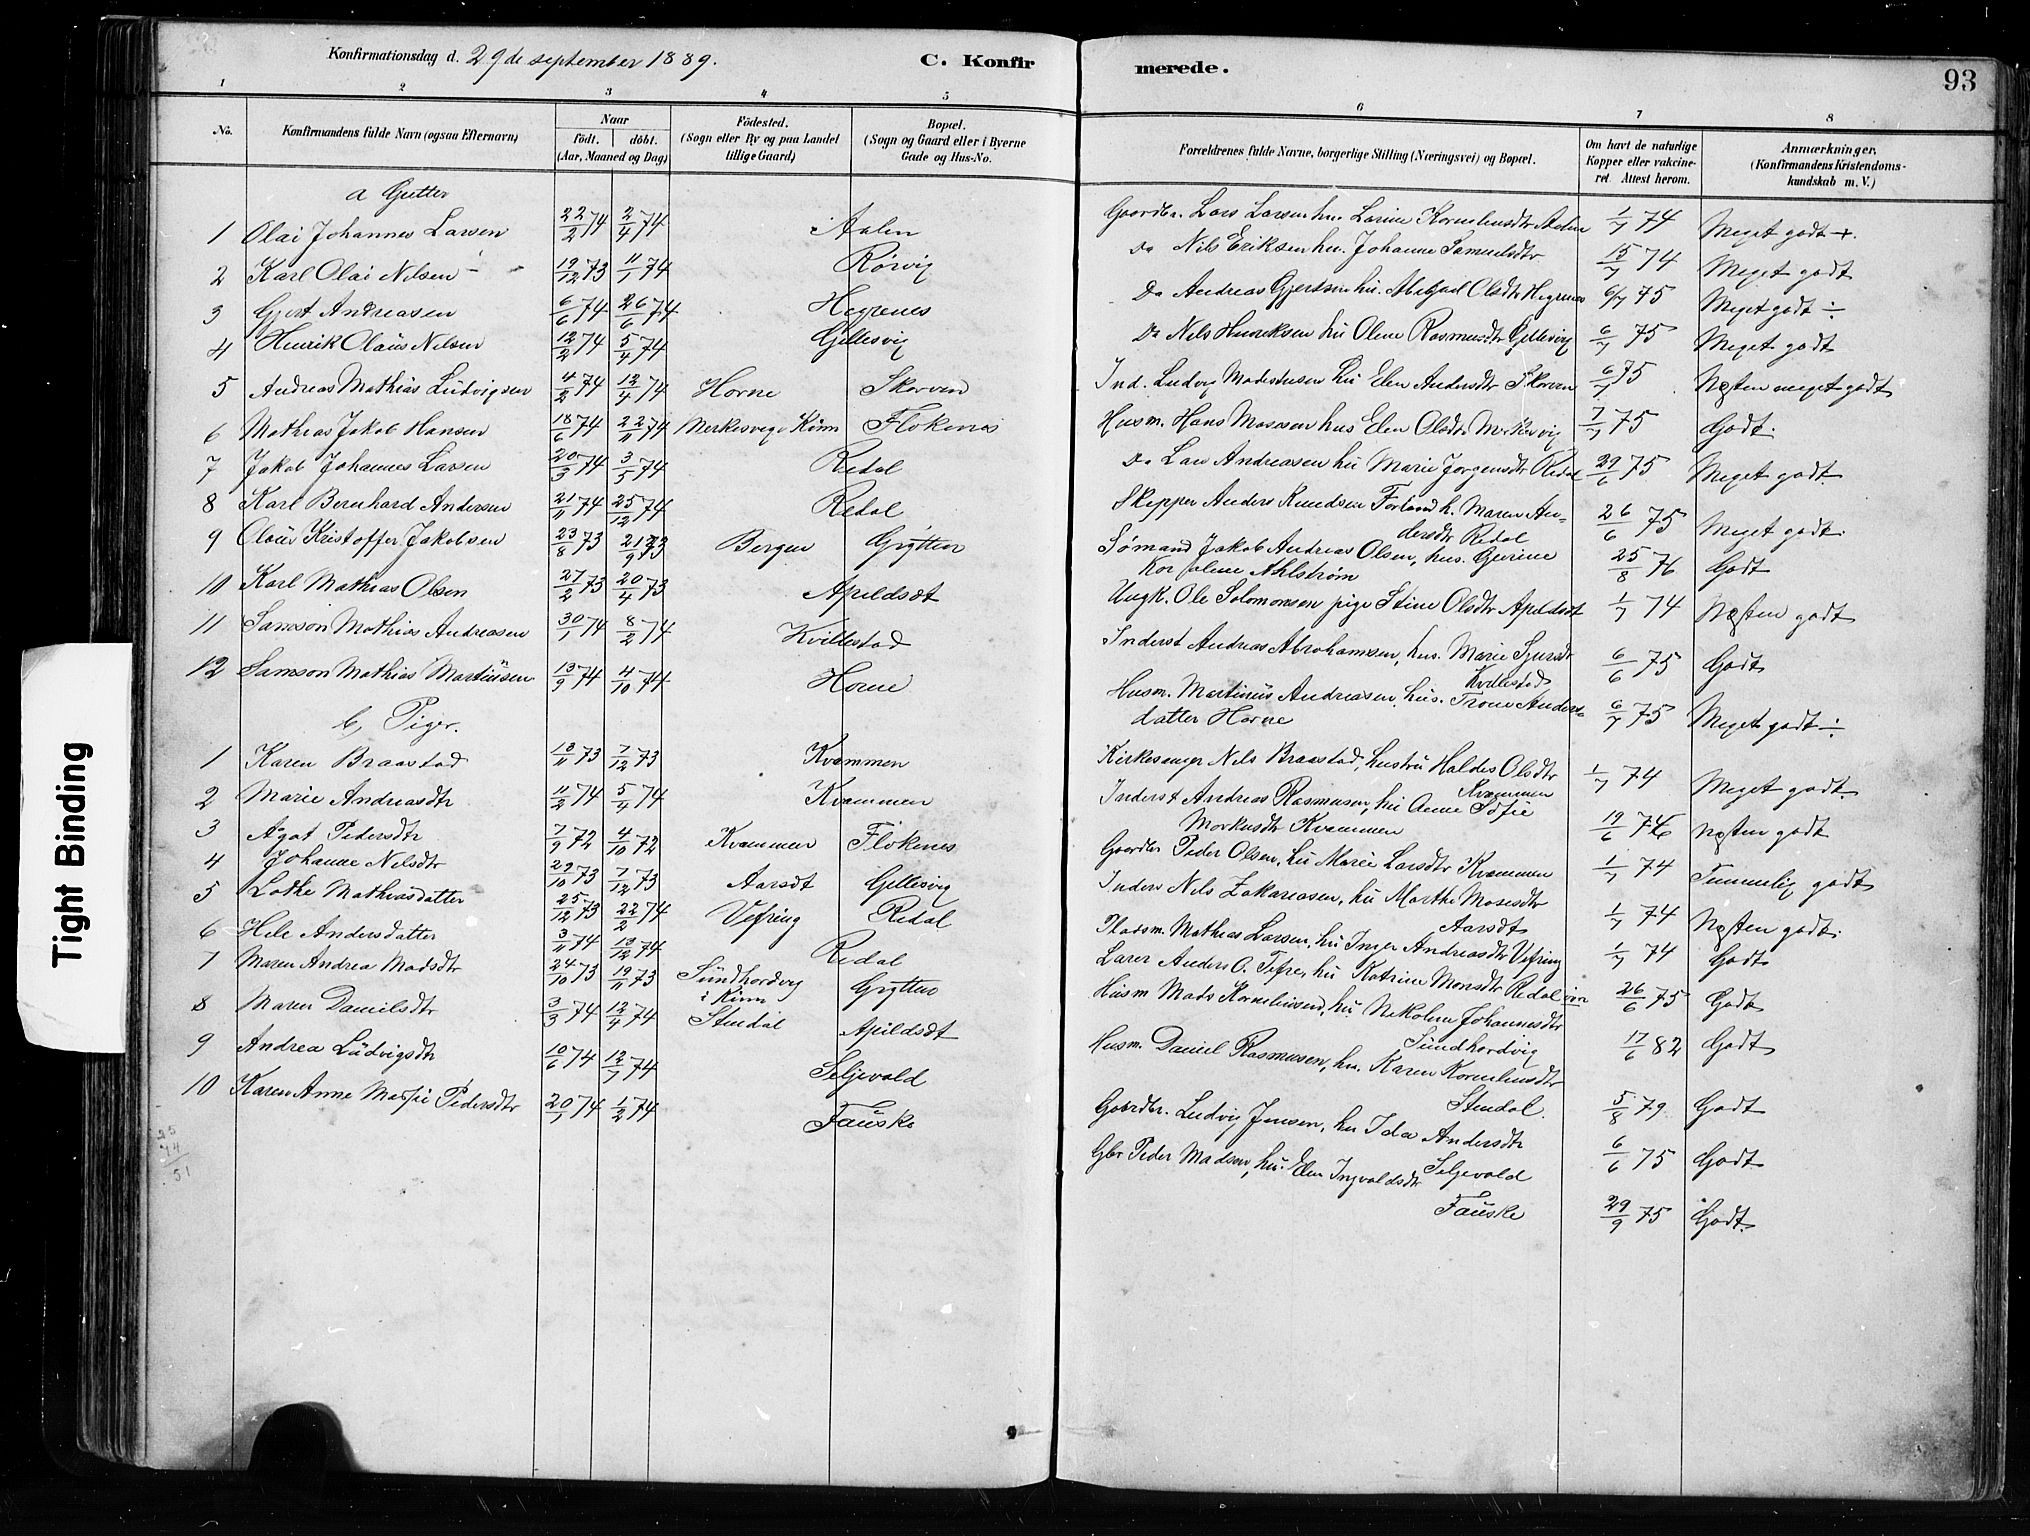 Konfirmationsdag d. 29de september 1889.
C. Konfir
merede.
93
1 2 3 4 5 6 7 8
No. Konfirmandens fulde Navn (ogsaa Efternavn)
Naar
født. døbt.
(Aar, Maaned og Dag)
Fødested.
(Sogn eller By og paa Landet
tillige Gaard)
Bopæl.
(Sogn og Gaard eller i Byerne
Gade og Hus-No.
Forældrenes fulde Navne, borgerlige Stilling (Næringsvei) og Bopæl.
Om havt de naturlige
Kopper eller vakcine-
ret. Attest herom.
Anmærkninger.
(Konfirmandens Kristendoms-
kundskab m. V.)
a Gutter
1 Olai Johannes Larsen 22/2 74 2/4 74 Aalen Gaardbr. Lars Larsen hu. Larine Korneliusdtr Aalen 1/7 74 Meget godt +.
2 Karl Olai Nilsen 19/12 73 11/1 74 Rørvig Do Nils Eriksen hu. Johanne Samuelsdtr 15/7 74 Meget godt
3 Gjert Andreasen 6/6 74 26/6 74 Hegrenes Do Andreas Gjertsen hu. Abigael Olsdtr Hegrenes 6/7 75 Meget godt ÷
4 Henrik Olaus Nilsen 12/2 74 5/4 74 Gillesvig Do Nils Henriksen hu Oline Rasmusdtr Gillesvig 6/7 75 Meget godt
5 Andreas Mathias Ludvigsen 4/2 74 12/4 74 Horne Skorven Ind. Ludvig Madsen hu Elen Andersdtr Skorven 6/7 75 Næsten meget godt
6 Mathias Jakob Hansen 18/6 74 22/11 74 Merkesvig i Kinn Flokenes Husm. Hans Mossen hus Elen Olsdtr Merkesvig 7/7 75 Godt.
7 Jakob Johannes Larsen 20/3 74 3/5 74 Redal Do Lars Andreasen hu Marie Jørgensdtr Redal 29/6 75 Meget godt
8 Karl Bernhard Andersen 21/11 74 25/12 74 Redal Skipper Anders Knudsen Forland h. Maren An-
dersdtr Redal 26/6 75 Meget godt.
9 Olaus Kristoffer Jakobsen 23/8 73 21/9 73 Bergen Grytten Sømand Jakob Andreas Olsen, hus. Gurine
Kornoline Ahlstrøm 25/8 76 Godt
10 Karl Mathias Olsen 27/2 73 20/4 73 Apildsdt Ungk. Ole Solomonsen pige Stine Olsdtr Apildsdt 1/7 74 Næsten godt
11 Samson Mathias Andreasen 30/1 74 8/2 74 Kvillestad Inderst Andreas Abrahamsen, hus. Marie Sjursdtr
Kvillestad 6/6 75 Godt
12 Samson Mathias Martinusen 13/9 74 4/10 74 Horne Husm. Martinus Andreasen, hus. Trone Anders-
datter Horne 6/7 75 Meget godt ÷
b, Piger.
1 Karen Braastad 13/11 73 7/12 73 Kvammen Kirkesanger Nils Braastad, hustru Haldis Olsdtr
Kvammen 1/7 74 Meget godt.
2 Marie Andreasdtr 11/2 74 5/4 74 Kvammen Inderst Andreas Rasmusen, hu Anne Sofie
Morkusdtr Kvammen 19/6 76 Næsten godt
3 Agot Pedersdtr 7/9 72 4/10 72 Kvammen Flokenes Gaardbr Peder Olsen, hu Marie Larsdtr Kvammen 1/7 74 Temmelig godt
4 Johanne Nilsdtr 29/10 73 7/12 73 Aarsdt Gillesvig Inders Nils Zakariasen, hu Marthe Mosesdtr
Aarsdt 1/7 74 Næsten godt.
5 Lothe Mathiasdatter 25/12 73 22/2 74 Vefring Redal Pladsm. Mathias Larsen, hu Inger Andreasdtr Vefring 1/7 74 Godt
6 Hele Andersdatter 3/11 74 13/12 74 Redal Lærer Anders O. Tefre, hu Katrine Monsdtr Redal 26/6 75 Godt
7 Maren Andrea Madsdtr 24/10 73 19/11 73 Sundhordvig
i Kinn Grytten Husm Mads Korneliussen, hu Nikoline Johannesdtr
Sundhordvig 17/6 82 Godt
8 Maren Danielsdtr 3/3 74 12/4 74 Stendal Apildsdt Husm. Daniel Rasmusen, hu. Karen Korneliusdtr
Stendal. 5/8 79 Godt
9 Andrea Ludvigsdtr 10/6 74 12/7 74 Seljevold Gaardbr. Ludvig Jensen, hu Ida Andersdtr
Seljevold 6/6 75 Godt
10 Karen Anne Marie Pedersdtr 20/1 74 1/2 74 Fauske Gbr Peder Madsen, hu. Elen Ingvaldsdtr
Fauske 29/9 75 Godt.
25
44
51
Tight Binding